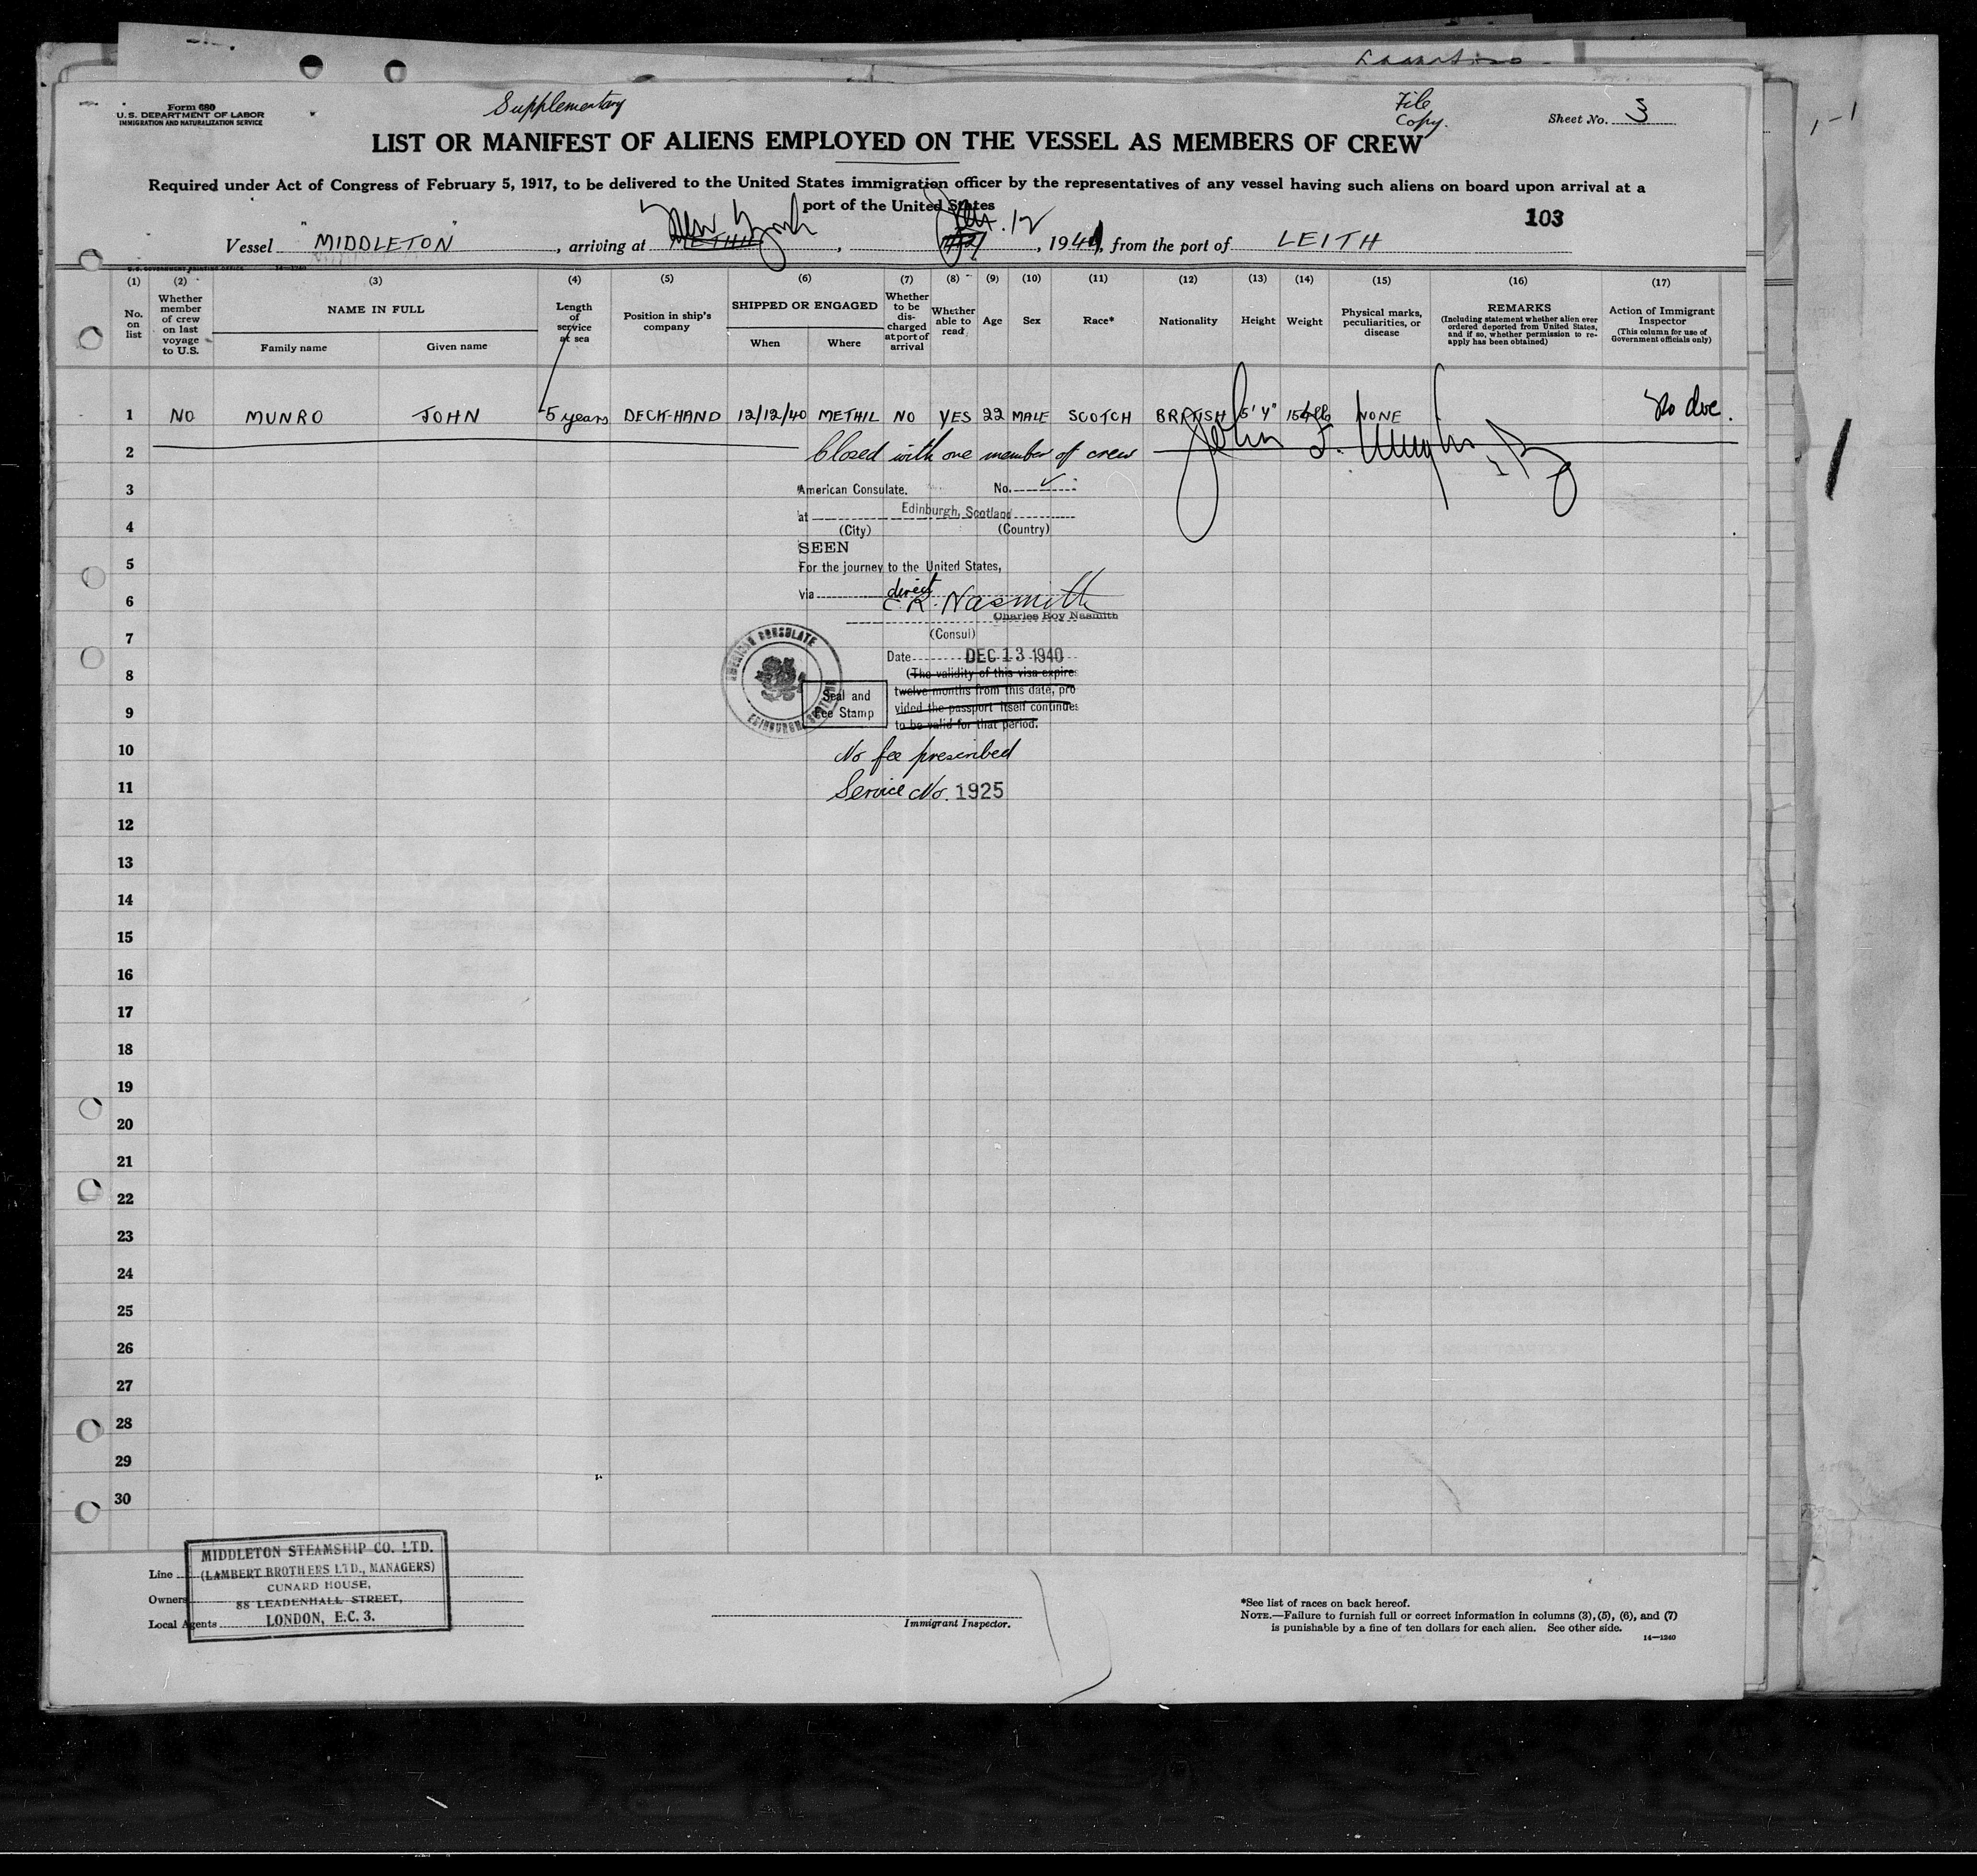 Form 680
U.S. DEPARTMENT OF LABOR
IMMIGRATION AND NATURALIZATION SERVICE
Supplementary
File
Copy.
Sheet No. 3
LIST OR MANIFEST OF ALIENS EMPLOYED ON THE VESSEL AS MEMBERS OF CREW
Required under Act of Congress of February 5, 1917, to be delivered to the United States immigration officer by the representatives of any vessel having such aliens on board upon arrival at a
port of the United States
103
Vessel "MIDDLETON", arriving at METHIL New York, 12, 1941, from the port of LEITH
U.S. GOVERNMENT PRINTING OFFICE 14—1240
(1) (2) (3) (4) (5) (6) (7) (8) (9) (10) (11) (12) (13) (14) (15) (16) (17)
No. on list
Whether member of crew on last voyage to U.S.
NAME IN FULL
Family name
Given name
Length of service at sea
Position in ship's company
SHIPPED OR ENGAGED
When
Where
Whether to be discharged at port of arrival
Whether able to read
Age
Sex
Race*
Nationality
Height
Weight
Physical marks, peculiarities, or disease
REMARKS
(Including statement whether alien ever ordered deported from United States, and if so, whether permission to re-apply has been obtained)
Action of Immigrant Inspector
(This column for use of Government officials only)
1 NO MUNRO JOHN 5 years DECK-HAND 12/12/40 METHIL NO YES 22 MALE SCOTCH BRITISH 5'4" NONE
2 Closed with one member of crew
3
American Consulate. No.
4
at Edinburgh, Scotland
(City) (Country)
SEEN
5
For the journey to the United States,
6
via direct
C. R. Nasmith
Charles Roy Nasmith
7
(Consul)
AMERICAN CONSULATE
EDINBURGH, SCOTLAND
Date DEC 13 1940
8
(The validity of this visa expires
twelve months from this date, pro
9
vided the passport itself continues
to be valid for that period.
Seal and
Fee Stamp
10
No fee prescribed
11
Service No. 1925
12
13
14
15
16
17
18
19
20
21
22
23
24
25
26
27
28
29
30
Line
Owners
Local Agents
MIDDLETON STEAMSHIP CO. LTD.
(LAMBERT BROTHERS LTD., MANAGERS)
CUNARD HOUSE,
88 LEADENHALL STREET,
LONDON, E.C. 3.
Immigrant Inspector.
*See list of races on back hereof.
NOTE.—Failure to furnish full or correct information in columns (3), (5), (6), and (7)
is punishable by a fine of ten dollars for each alien. See other side.
14—1240